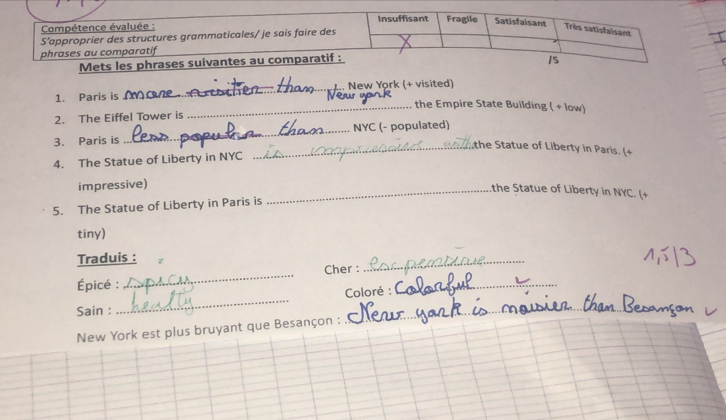 Compétence évaluée :
S'approprier des structures grammaticales/ je sais faire des
phrases au comparatif
Insuffisant Fragile Satisfaisant Très satisfaisant
X
/5
Mets les phrases suivantes au comparatif :
1. Paris is more than New York (+ visited)
New york
2. The Eiffel Tower is ........ the Empire State Building ( + low)
3. Paris is less than ........ NYC (- populated)
4. The Statue of Liberty in NYC is the Statue of Liberty in Paris. (+
impressive)
5. The Statue of Liberty in Paris is ........ the Statue of Liberty in NYC. (+
tiny)
Traduis :
Épicé : spicy
Cher : expensive
1,5/3
Sain : healty
Coloré : Colorful
New York est plus bruyant que Besançon : New york is noisier than Besançon